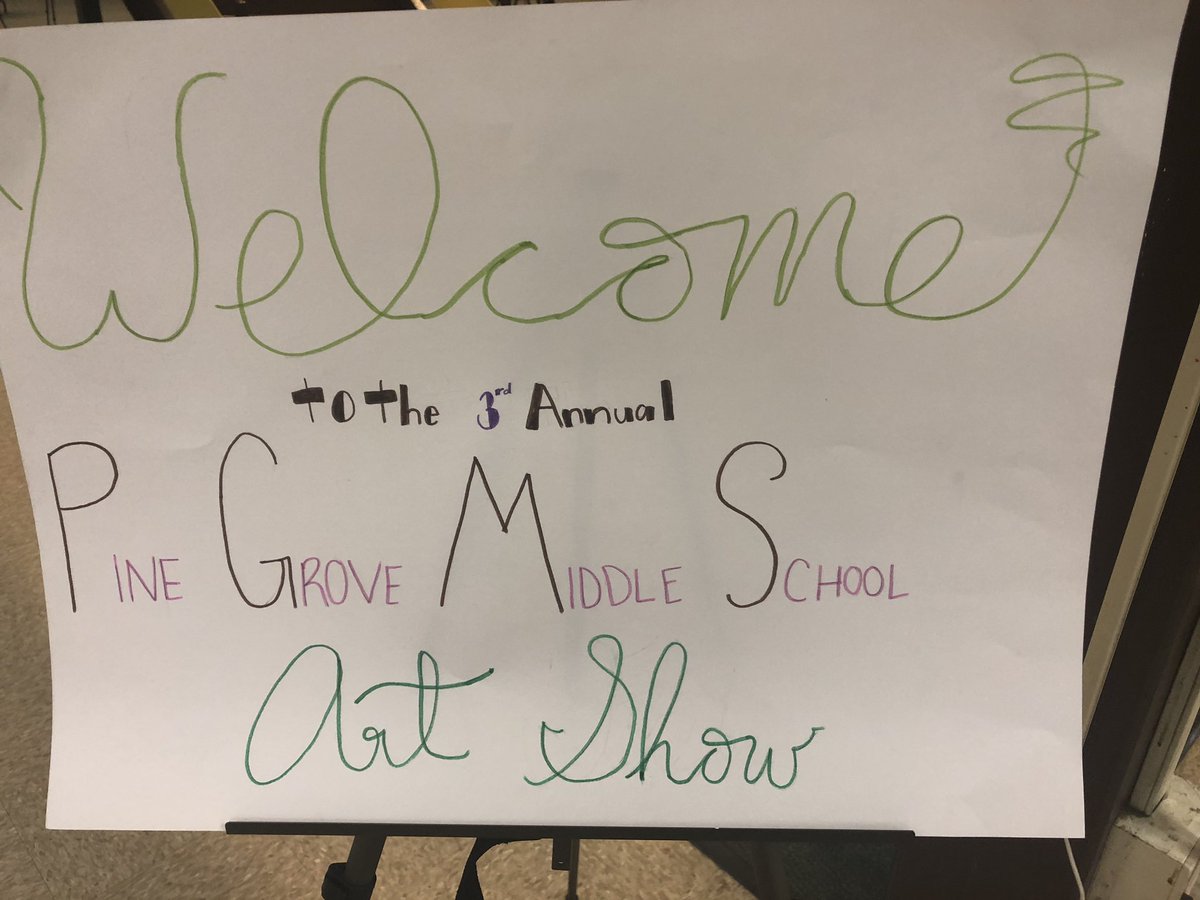 Welcome
to the 3rd Annual
PINE GROVE MIDDLE SCHOOL
Art Show